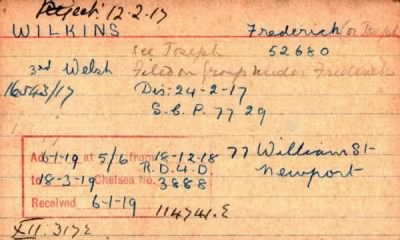 Reject: 12-2-17
WILKINS Frederick (or Joseph
See Joseph 52680
3rd Welsh Filed on Group under Frederick
16543/17 Dis: 24-2-17
S.C.P. 7729
Ad 6-1-19 at 5/6 from 18-12-18 77 William St
R.D.4.D. Newport
to 18-3-19 Chelsea No. 3888
Received 6-1-19 114741.E
XII: 317E